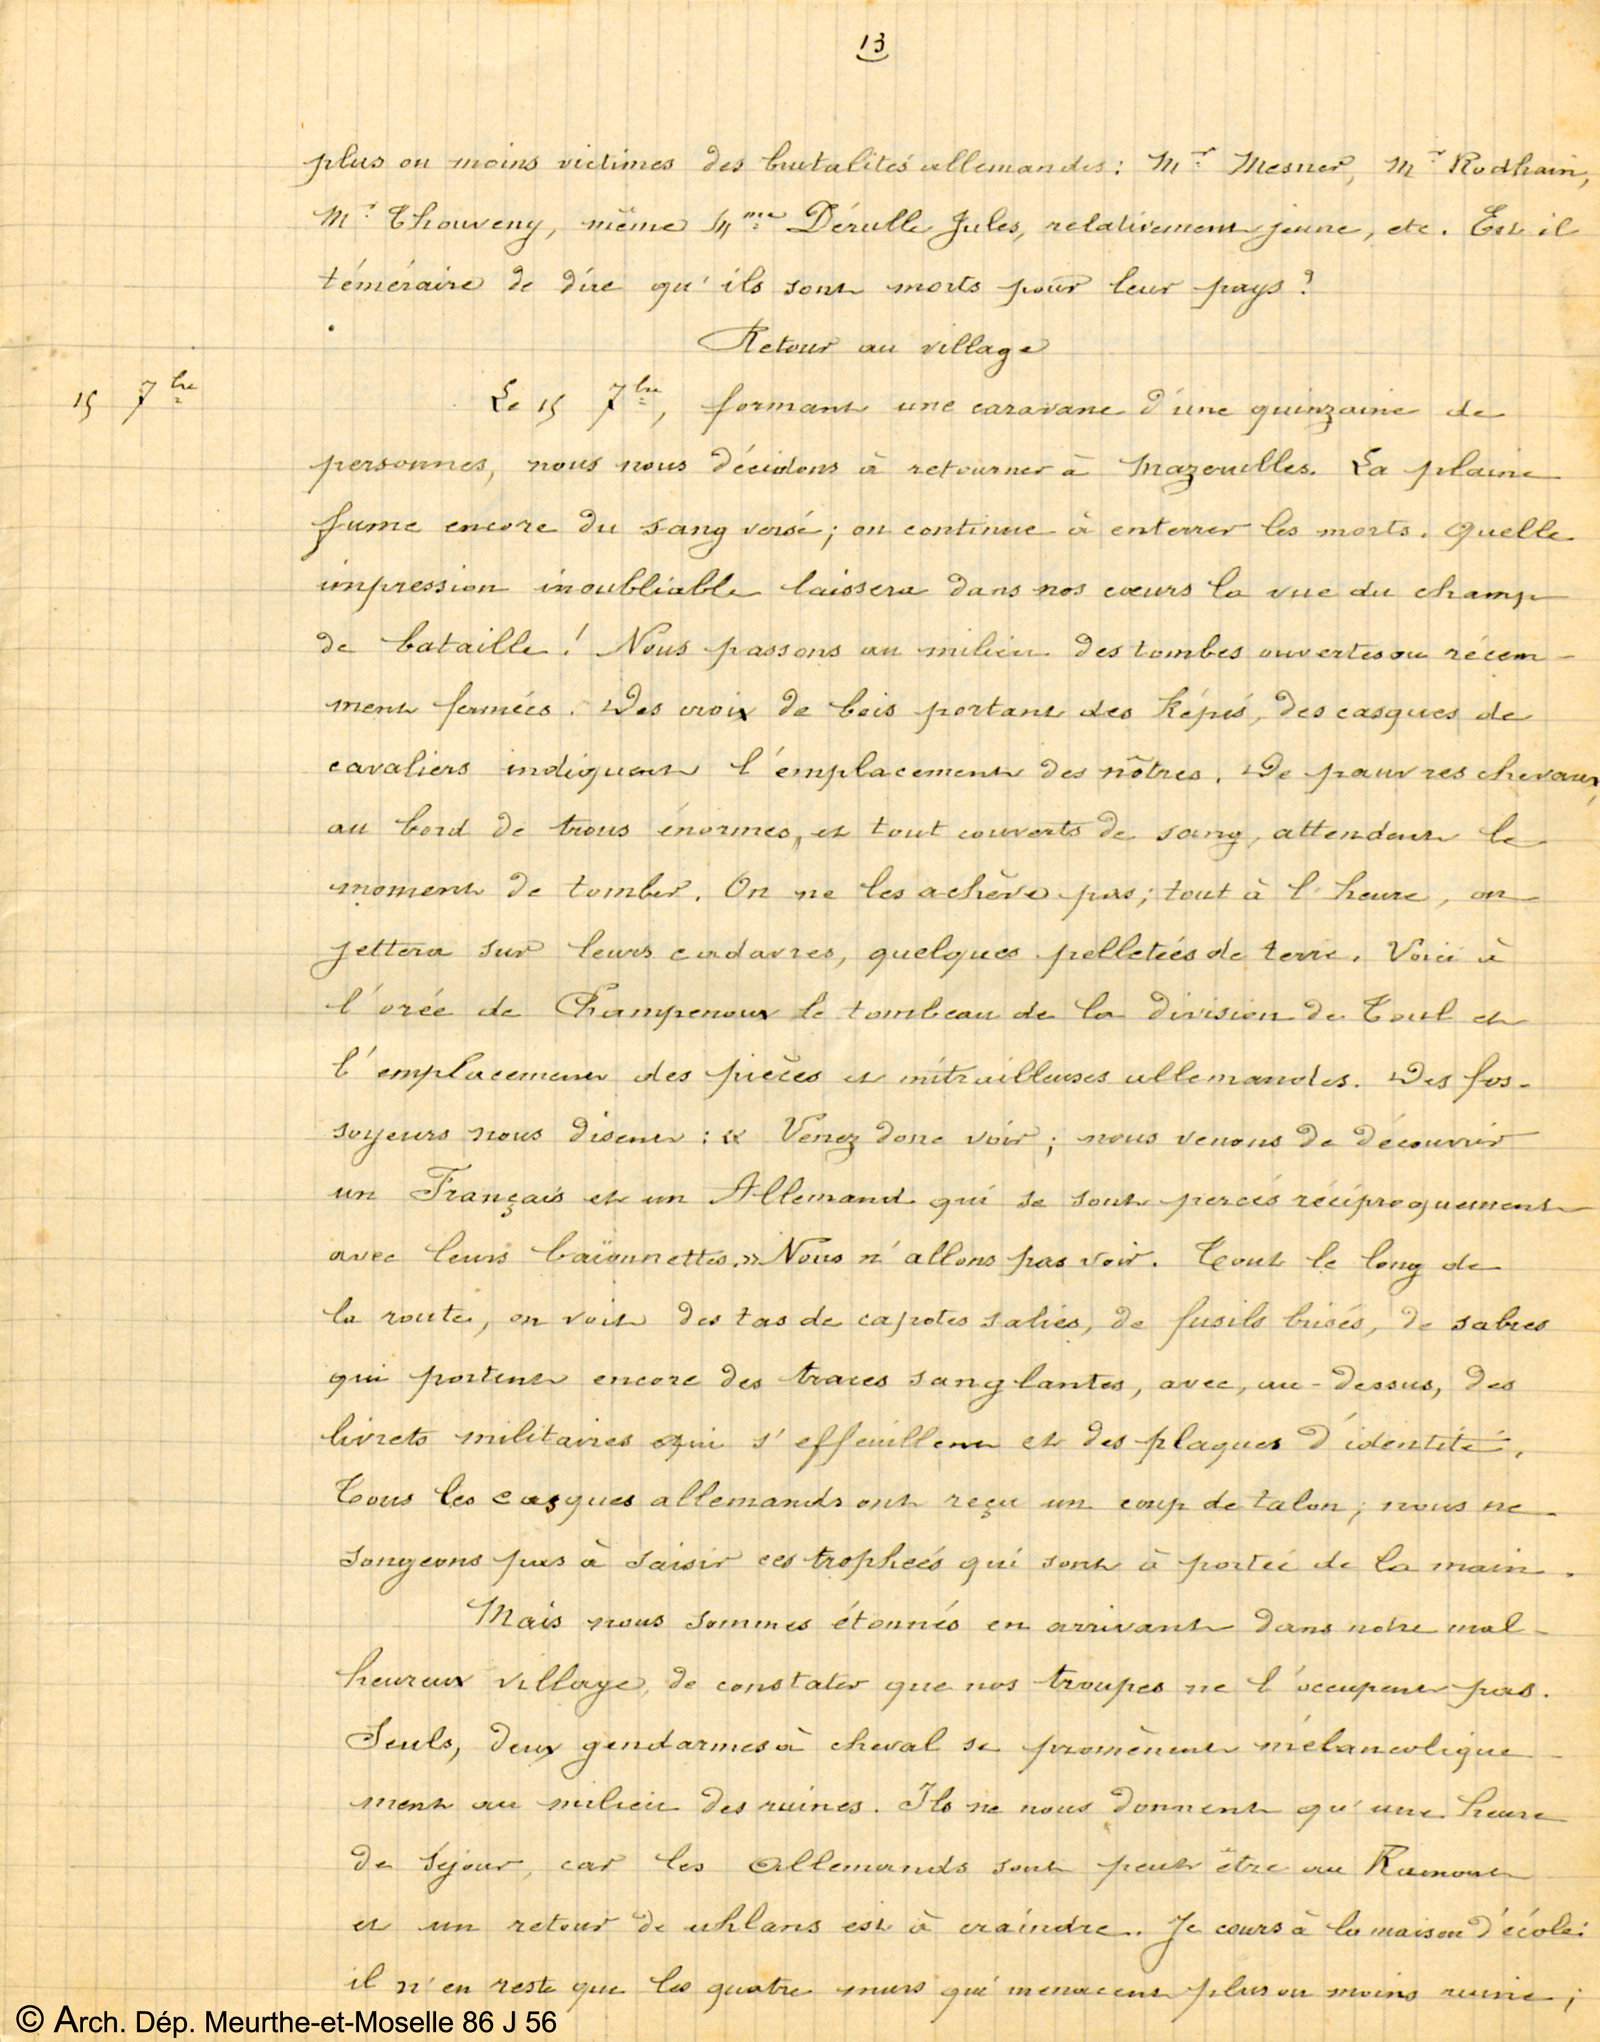 13
plus ou moins victimes des brutalités allemandes : Mr Mesner, Mr Rodhain,
Mr Thouveny, même Mme Dérulle Jules, relativement jeune, etc. Est il
téméraire de dire qu'ils sont morts pour leur pays ?
Retour au village
15 7bre
Le 15 7bre, formant une caravane d'une quinzaine de
personnes, nous nous décidons à retourner à Mazerulles. La plaine
fume encore du sang versé ; on continue à enterrer les morts. Quelle
impression inoubliable laissera dans nos cœurs la vue du champ
de bataille ! Nous passons au milieu des tombes ouvertes ou récem-
ment fermées. Des croix de bois portant des képis, des casques de
cavaliers indiquent l'emplacement des nôtres. De pauvres chevaux,
au bord de trous énormes, et tout couverts de sang, attendent le
moment de tomber. On ne les achève pas ; tout à l'heure, on
jettera sur leurs cadavres, quelques pelletées de terre. Voici à
l'orée de Champenoux le tombeau de la division de Toul et
l'emplacement des pièces et mitrailleuses allemandes. Des fos-
soyeurs nous disent : « Venez donc voir ; nous venons de découvrir
un Français et un Allemand qui se sont percés réciproquement
avec leurs baïonnettes. » Nous n'allons pas voir. Tout le long de
la route, on voit des tas de capotes salies, de fusils brisés, de sabres
qui portent encore des traces sanglantes, avec, au-dessus, des
livrets militaires qui s'effeuillent et des plaques d'identité.
Tous les casques allemands ont reçu un coup de talon ; nous ne
songeons pas à saisir ces trophées qui sont à portée de la main.
Mais nous sommes étonnés en arrivant dans notre mal-
heureux village, de constater que nos troupes ne l'occupent pas.
Seuls, deux gendarmes à cheval se promènent mélancolique-
ment au milieu des ruines. Ils ne nous donnent qu'une heure
de séjour, car les Allemands sont peut être au Ramont
et un retour de uhlans est à craindre. Je cours à la maison d'école :
il n'en reste que les quatre murs qui menacent plus ou moins ruine ;
© Arch. Dép. Meurthe-et-Moselle 86 J 56